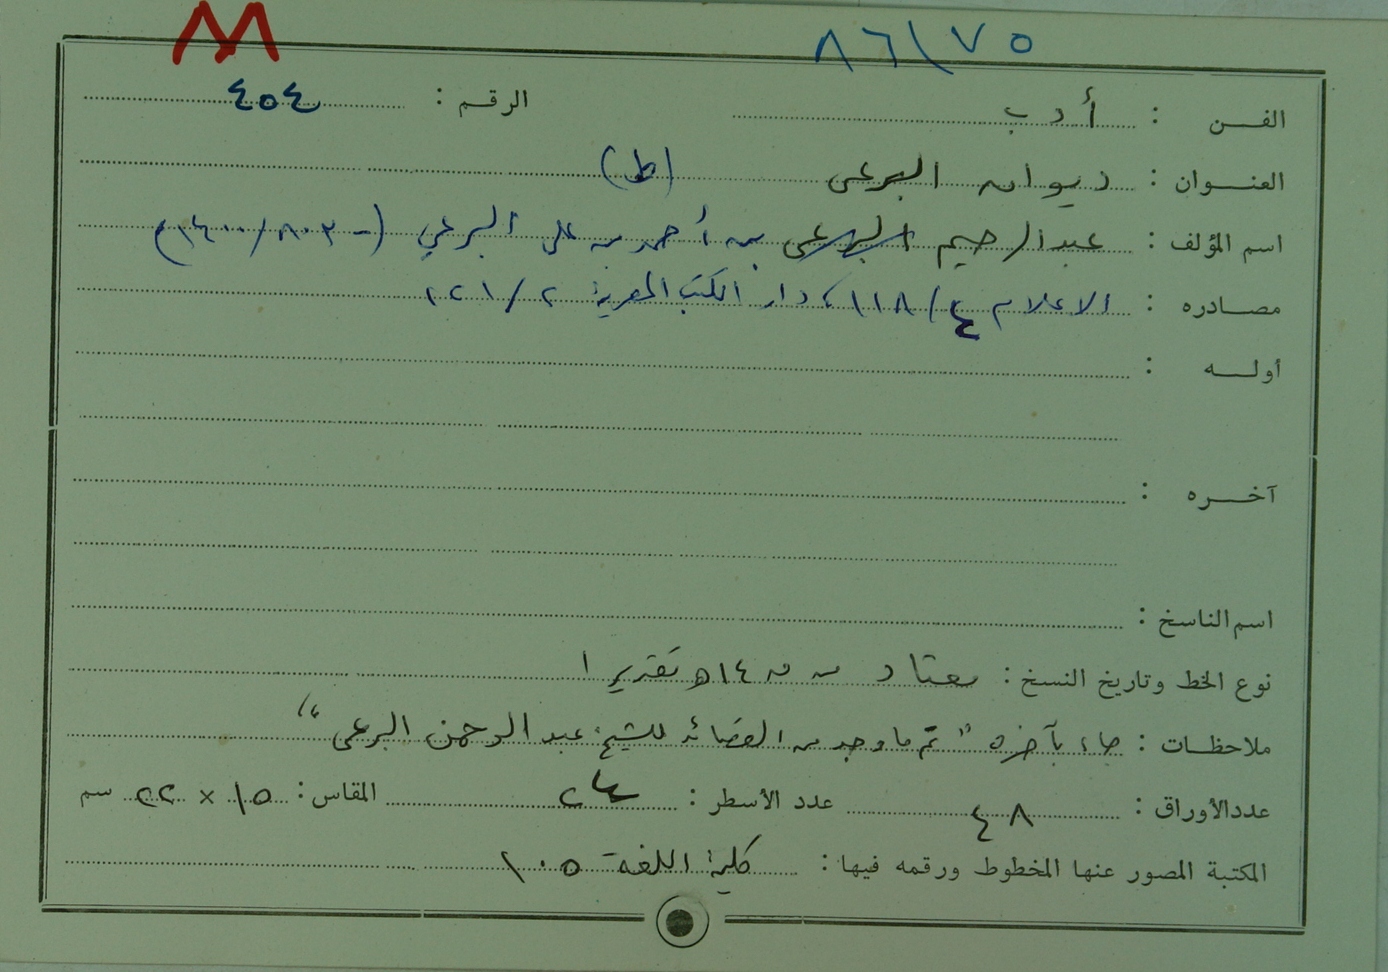 ٨٦١٧٥
الفن : أدب الرقم : ٤٥٤
العنوان : ديوان البرعي (ط)
اسم المؤلف : عبد الرحيم البرعي بن أحمد بن علي البرعي (-٨٠٣/١٤٠٠م)
مصادره : الاعلام ٤/١١٨، دار الكتب المصرية ٢/١٢١
أوله :
آخره :
اسم الناسخ :
نوع الخط وتاريخ النسخ : معتاد من ق ١٤هـ تقديرا
ملاحظات : جاء بآخره "تم ما وجد من القصائد للشيخ عبد الرحمن البرعي"
عدد الأوراق : ٤٨ عدد الأسطر : ٢٤ المقاس : ١٥ × ٢٢ سم
المكتبة المصور عنها المخطوط ورقمه فيها : كلية اللغة ١٠٥